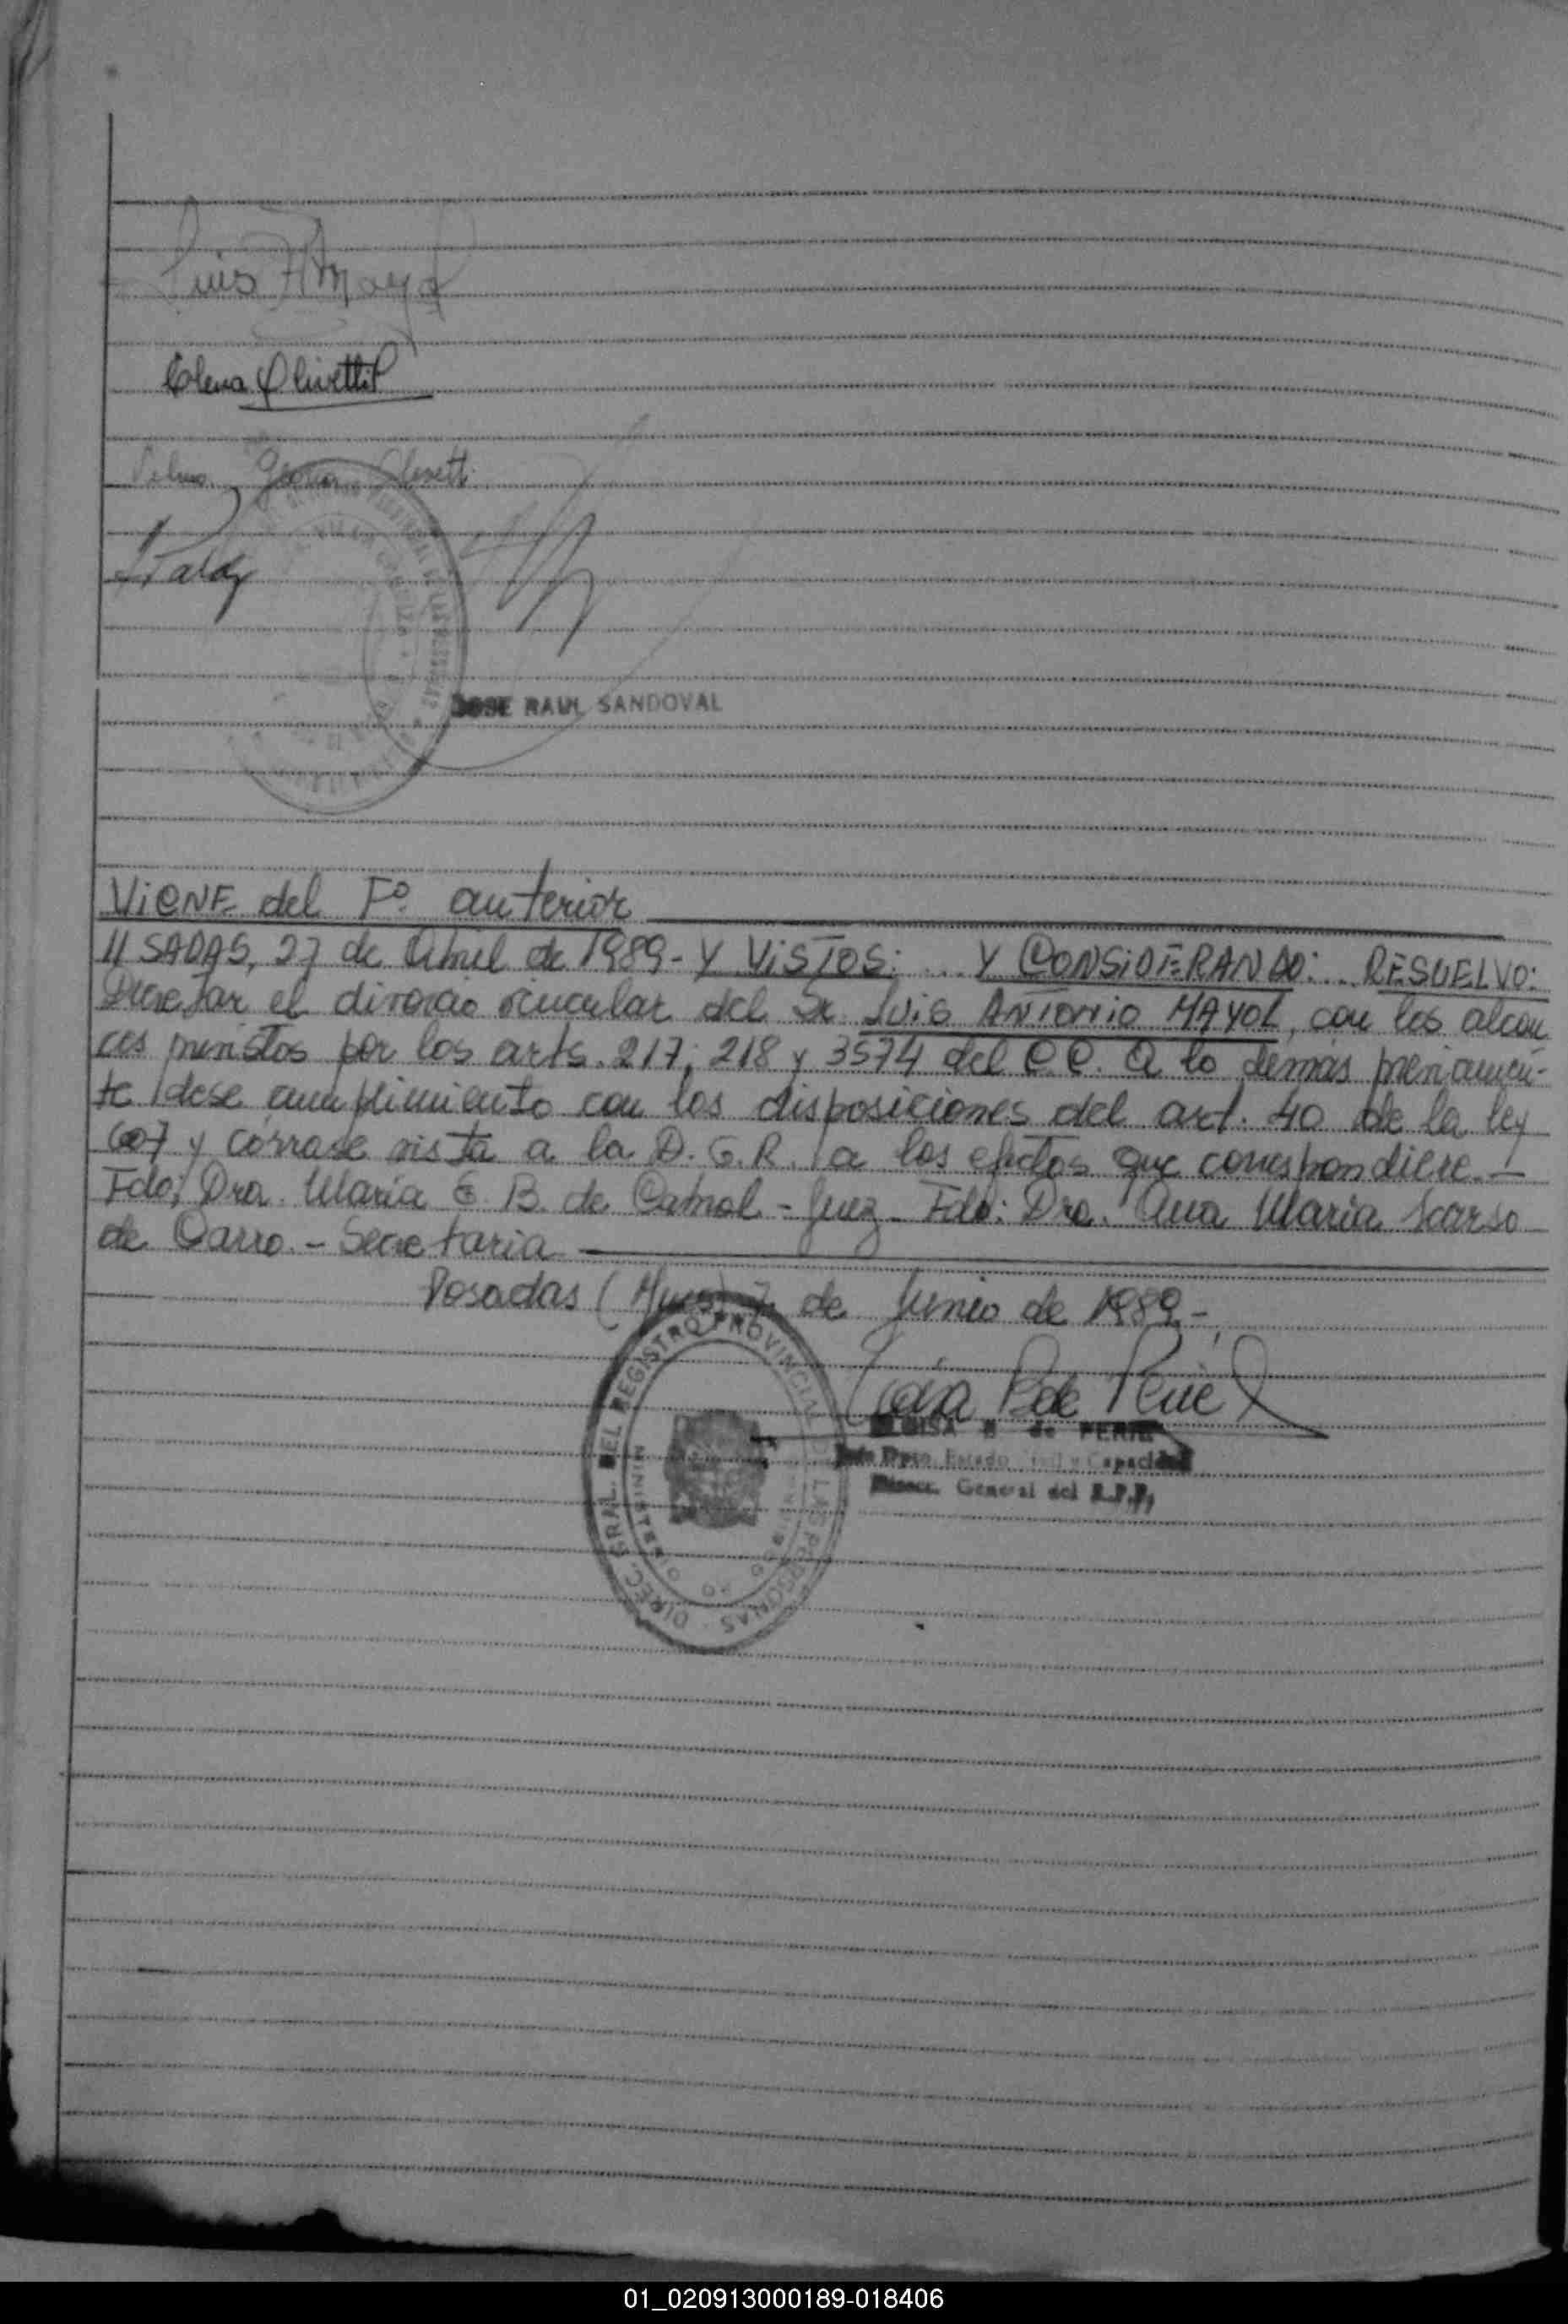 Luis A Mayol
Elena Olivetti
Olivetti
JOSE RAUL SANDOVAL
VIENE del Fº anterior
// SADAS, 27 de Abril de 1989 - Y VISTOS: ... Y CONSIDERANDO: ... RESUELVO:
Decretar el divorcio vincular del Sr Luis ANTONIO MAYOL, con los alcan
ces previstos por los arts. 217, 218 y 3574 del C.C. A lo demás previamen-
te dese cumplimiento con las disposiciones del art. 40 de la ley
607 y córrase vista a la D.G.R. a los efectos que correspondiere. -
Fdo; Dra. María E. B. de Cabral - Juez - Fdo: Dra. Ana María Scarso
de Carro. - Secretaria
Posadas (Mnes) 7 de Junio de 1989 -
ELOISA B de PERIE
Jefe Dpto. Estado Civil y Capacidad
Direcc. General del R.P.P.
DIREC. GRAL. DEL REGISTRO PROVINCIAL DE LAS PERSONAS
MINISTERIO DE GOBIERNO
01_020913000189-018406